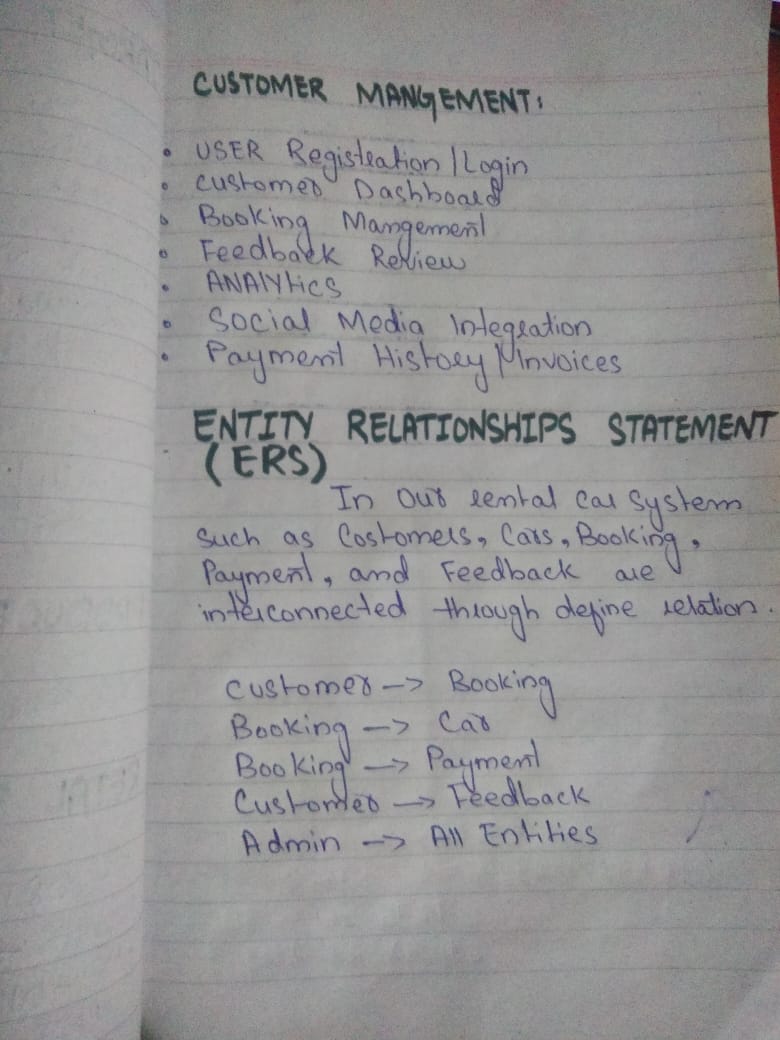 CUSTOMER MANGEMENT:
• USER Registration / Login
• Customer Dashboard
• Booking Mangement
• Feedback Review
• ANAlytics
• Social Media Integration
• Payment History / Invoices
ENTITY RELATIONSHIPS STATEMENT
(ERS)
In our rental car system
such as Costomers, Cars, Booking,
Payment, and Feedback are
interconnected through define relation.
Customer --> Booking
Booking --> Car
Booking --> Payment
Customer --> Feedback
Admin --> All Entities